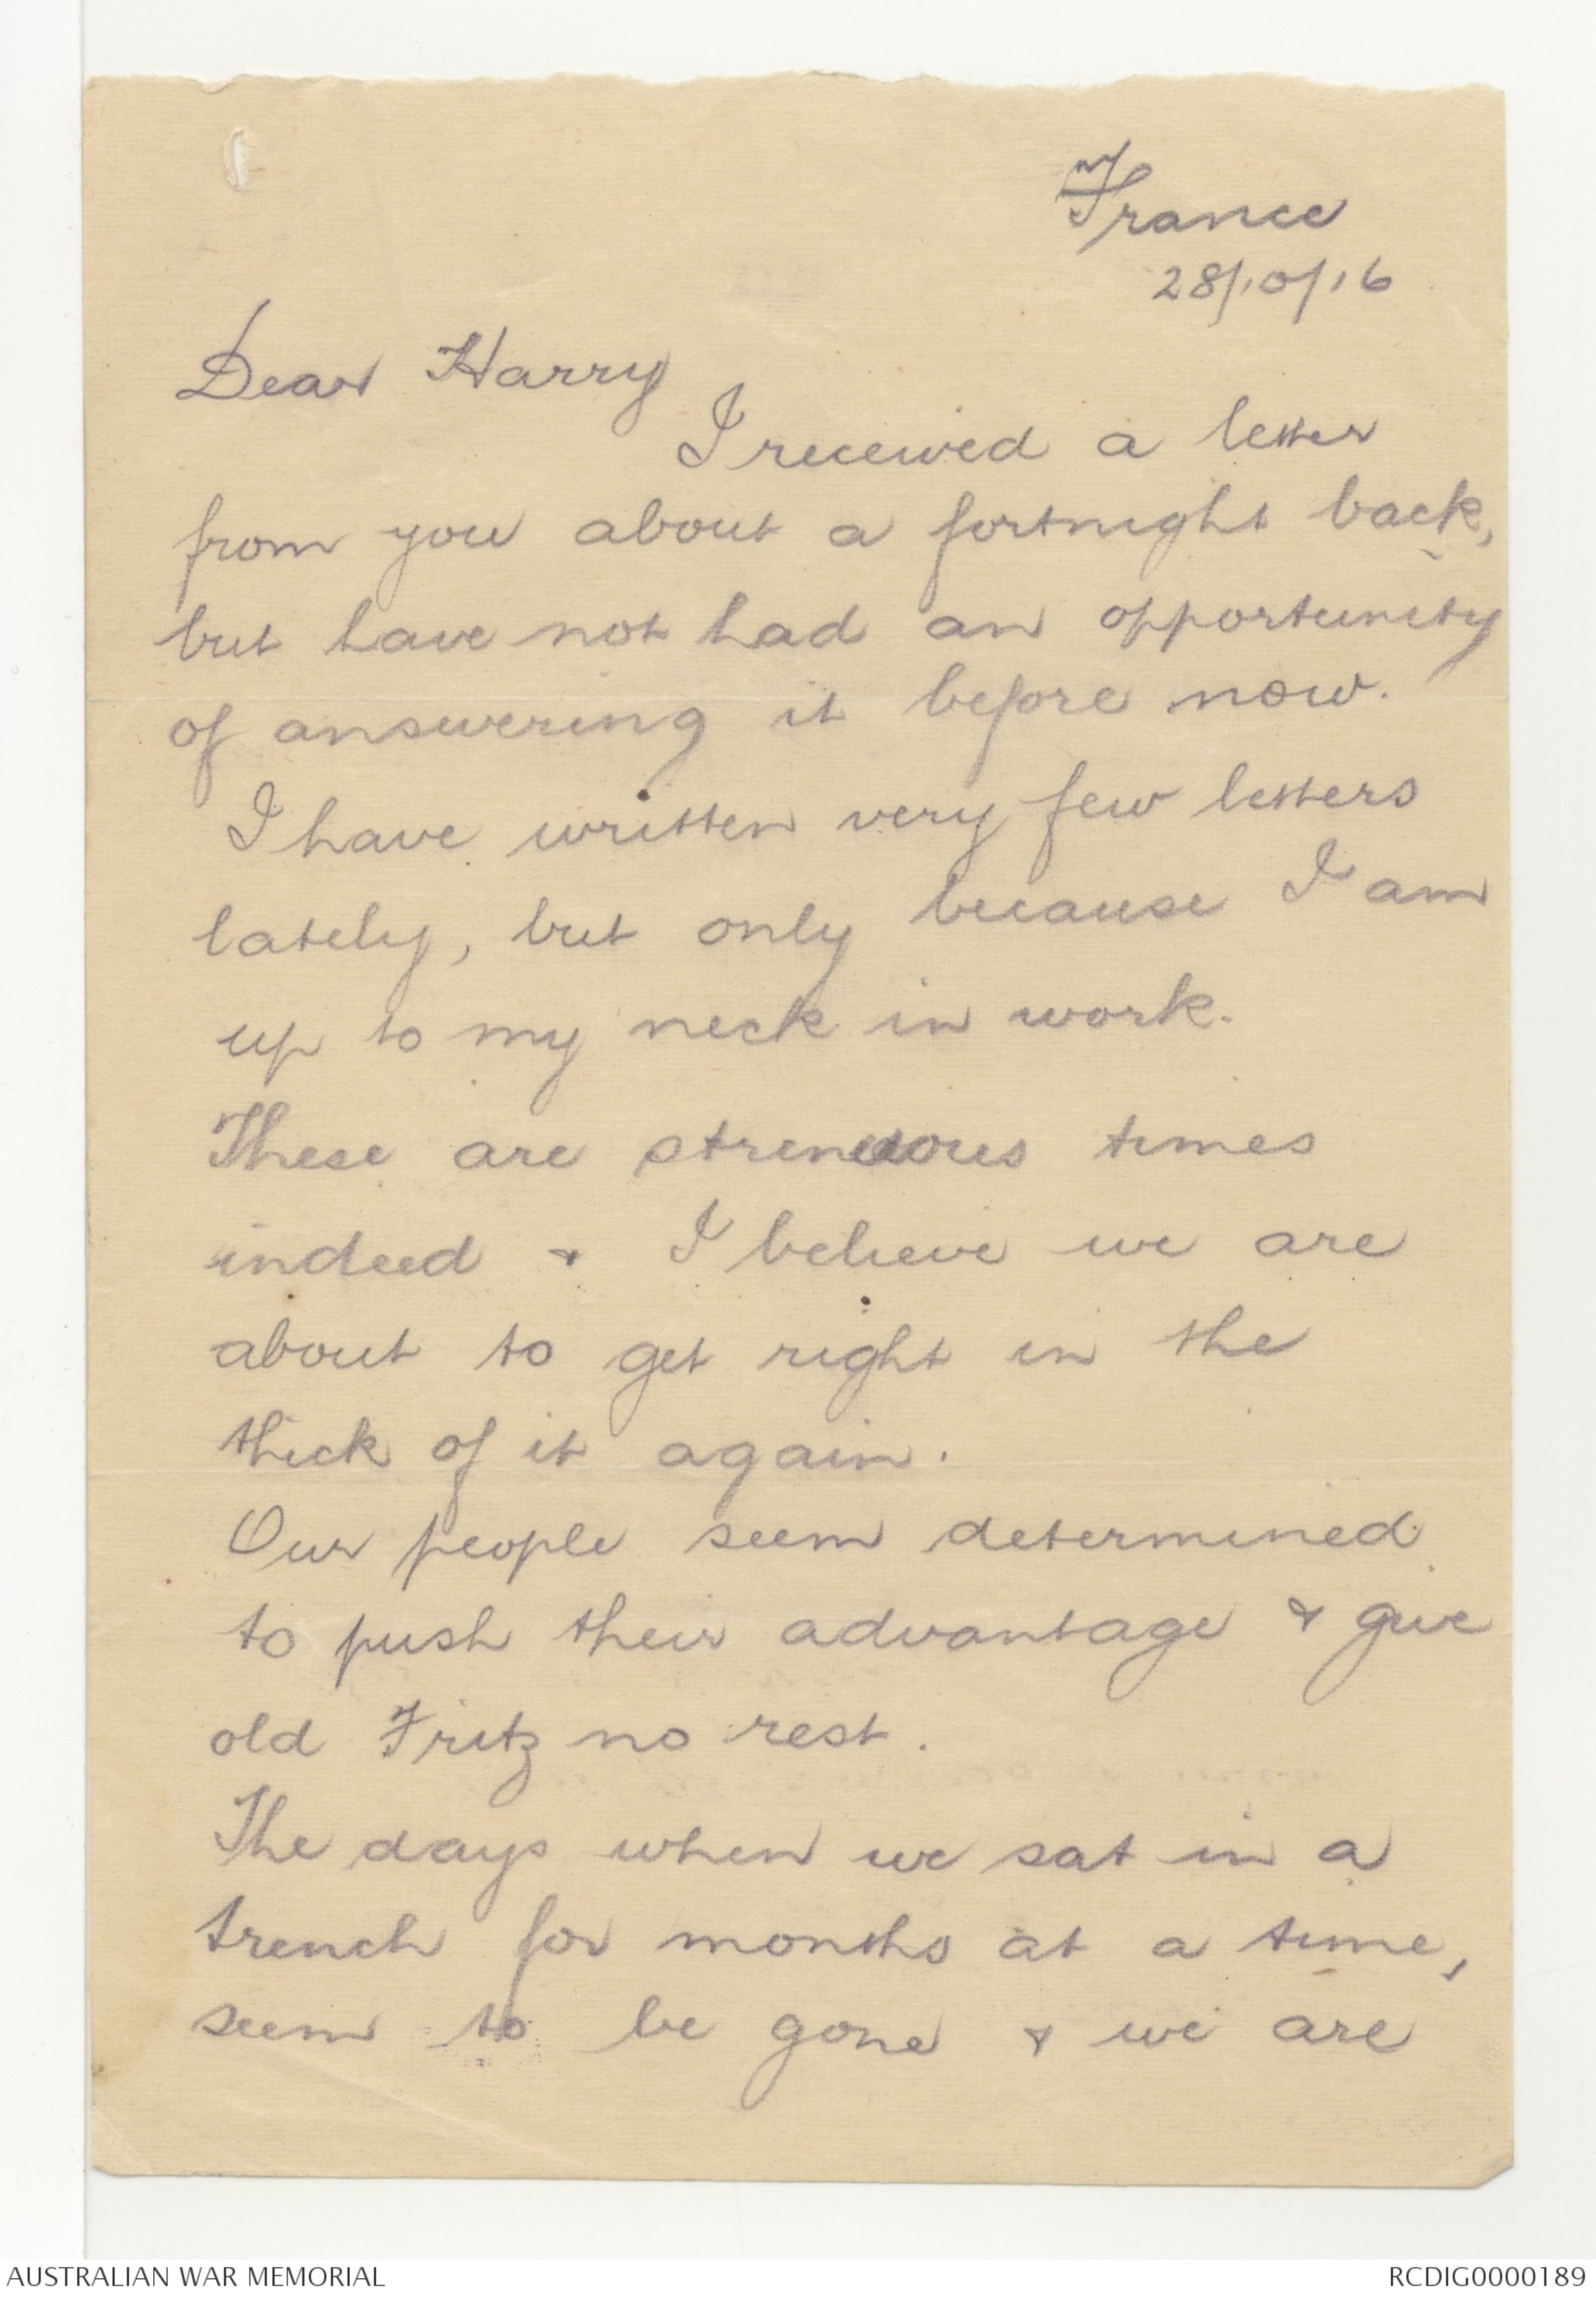 France
28/10/16
Dear Harry
I received a letter
from you about a fortnight back,
but have not had an opportunity
of answering it before now.
I have written very few letters
lately, but only because I am
up to my neck in work.
These are strenuous times
indeed & I believe we are
about to get right in the
thick of it again.
Our people seem determined
to push their advantage & give
old Fritz no rest.
The days when we sat in a
trench for months at a time,
seem to be gone & we are
AUSTRALIAN WAR MEMORIAL
RCDIG0000189